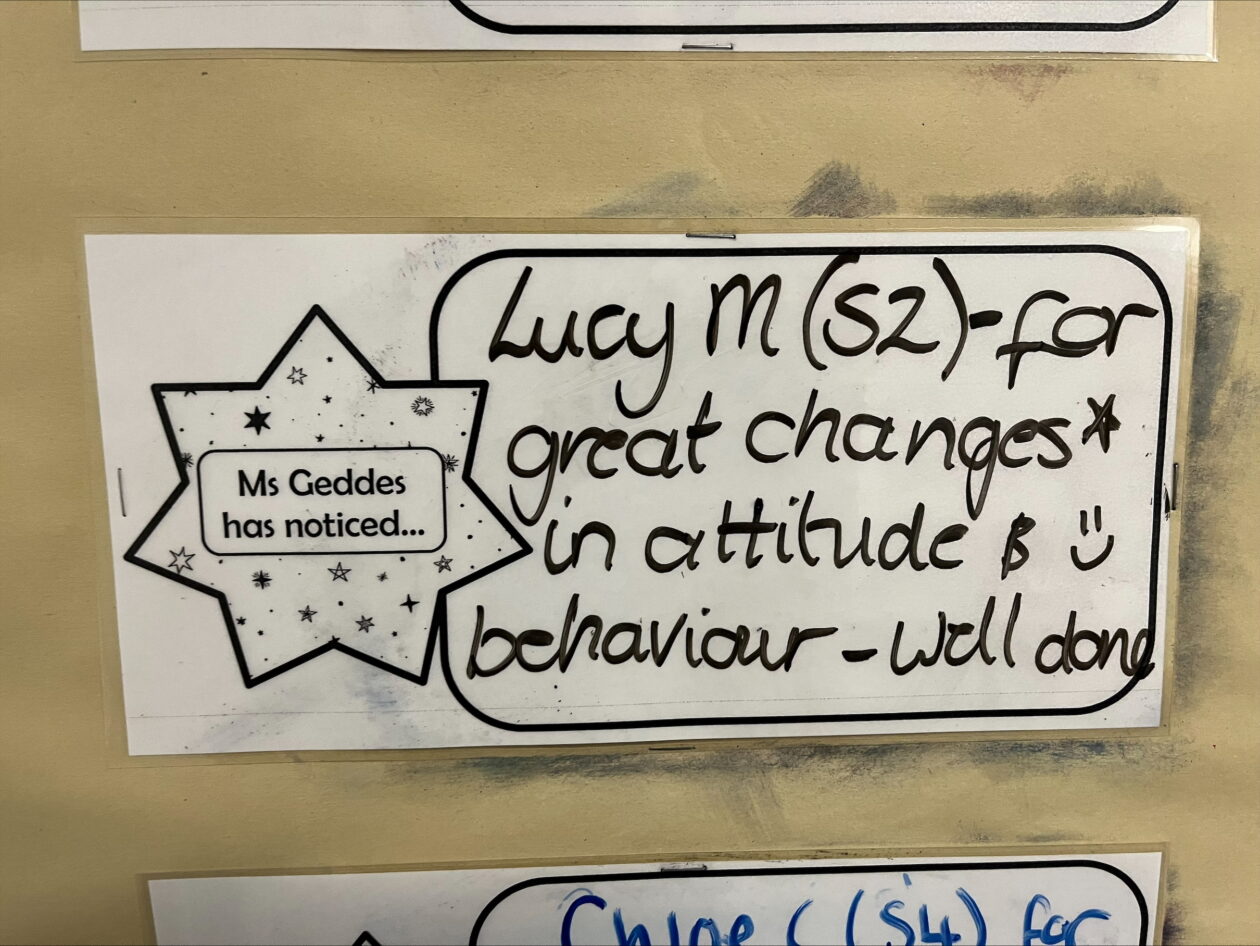 Ms Geddes
has noticed...
Lucy M (S2)-for
great changes*
in attitude &
behaviour - Well done
(S4) for